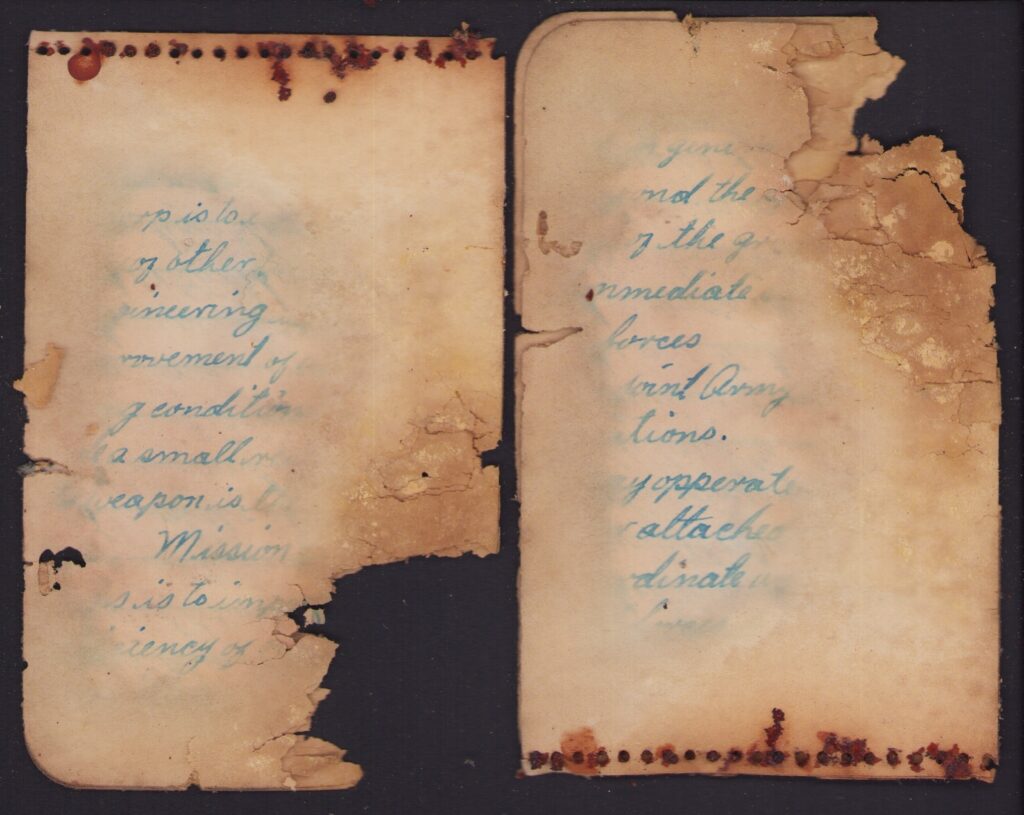 is to
of other
ineering
rovement of
g condition
a small
weapon is
Mission
is to imp
iciency of
gene
nd the
of the gr
mmediate
forces
oint Army
tions.
y opperate
attached
rdinate
forces